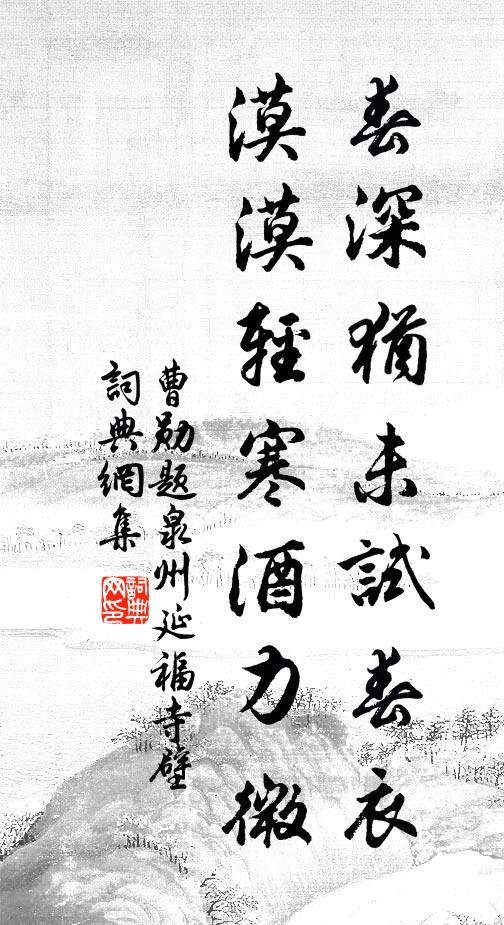 春深猶未試春衣
漠漠輕寒酒力微
曹勛題泉州延福寺壁
詞典網集
詞典網印